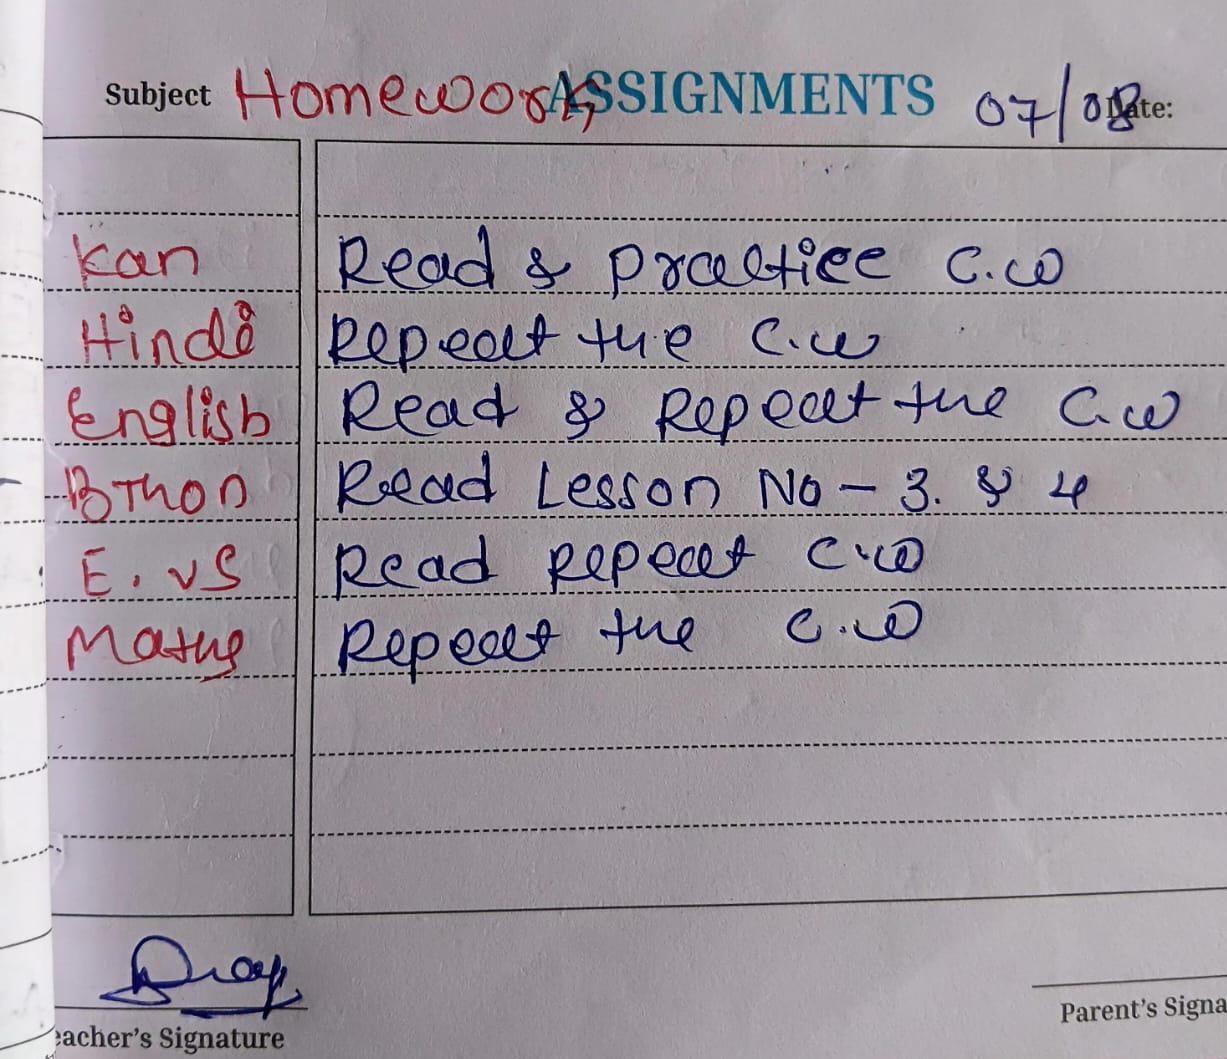 Subject Homework ASSIGNMENTS 07/08 Date:
Kan Read & practice C.W
Hindi Repeat the C.W
English Read & Repeat the C.W
Read Lesson No - 3. & 4
E.VS Read Repeat C.W
Maths Repeat the C.W
eacher's Signature Parent's Signa